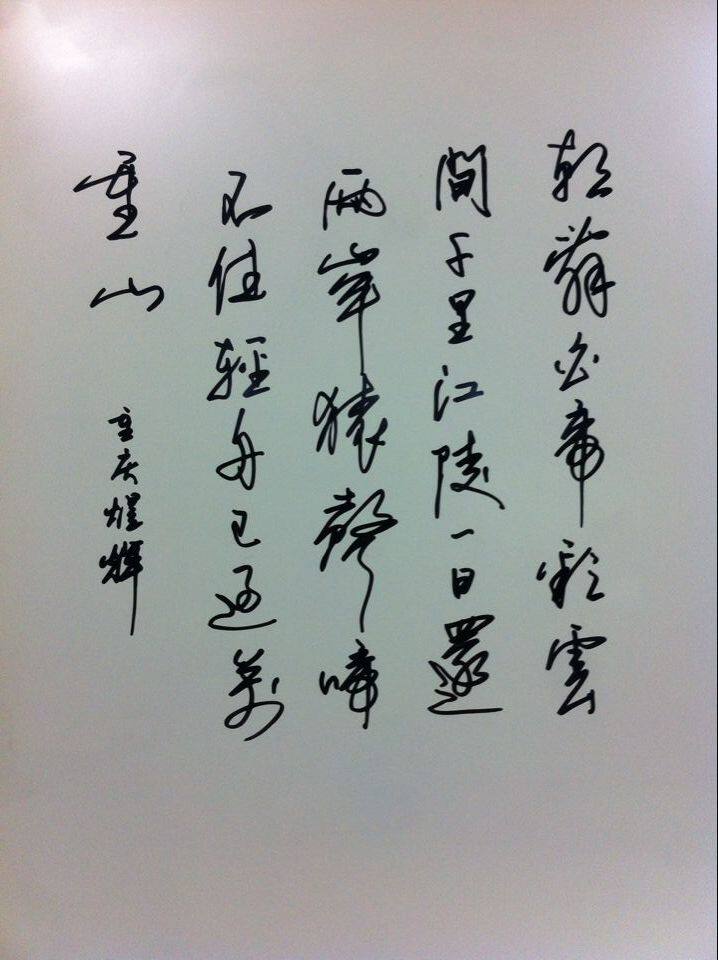 朝辭白帝彩雲
間千里江陵一日還
兩岸猿聲啼
不住輕舟已過萬
重山
重庆煌輝